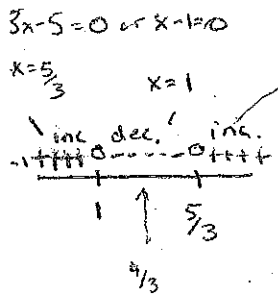 3x-5=0 or x-1=0
x=5/3 x=1
inc. dec. inc.
++++ 0 ----- 0 ++++
1 5/3
4/3